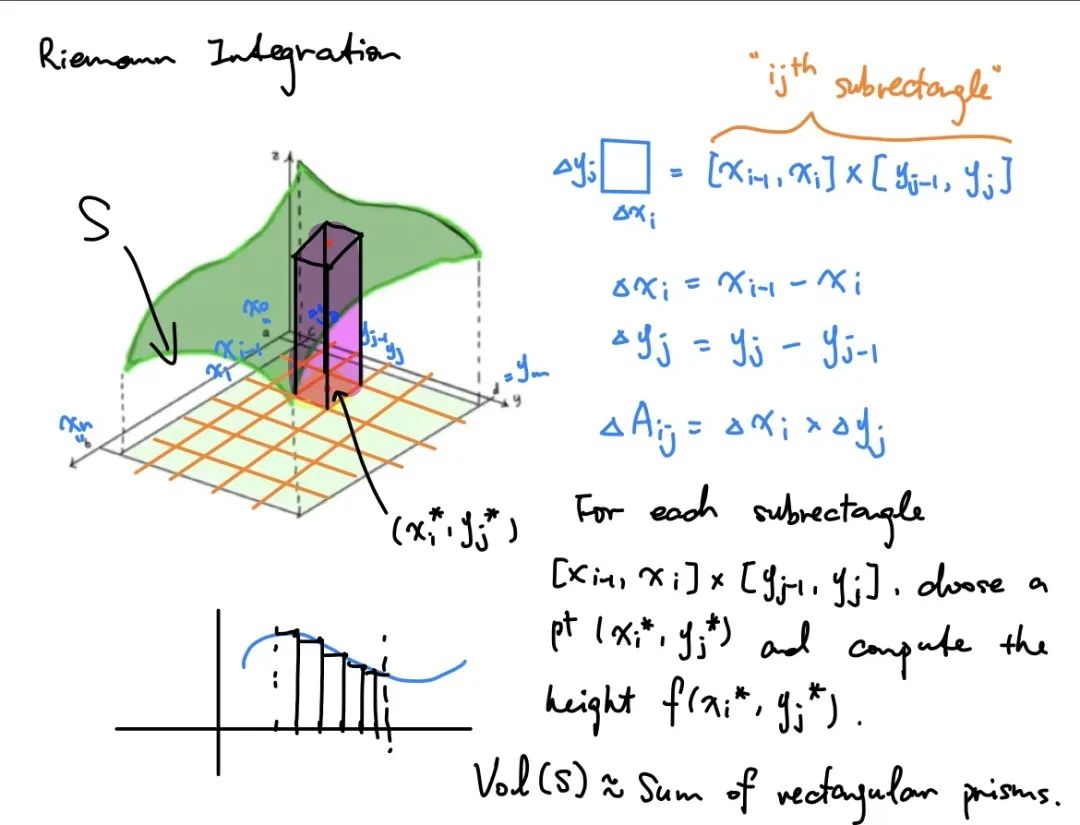 Riemann Integration
"ijth subrectangle"
Δyj □ = [xi-1, xi] × [yj-1, yj]
Δxi
S
z
x0
=
a
c
=y0
xi-1
xi
yj-1
yj
=ym
d
y
xn
=
b
Δxi = xi-1 - xi
Δyj = yj - yj-1
ΔAij = Δxi × Δyj
(xi*, yj*)
For each subrectangle
[xi-1, xi] × [yj-1, yj], choose a
pt (xi*, yj*) and compute the
height f(xi*, yj*).
Vol(S) ≈ Sum of rectangular prisms.